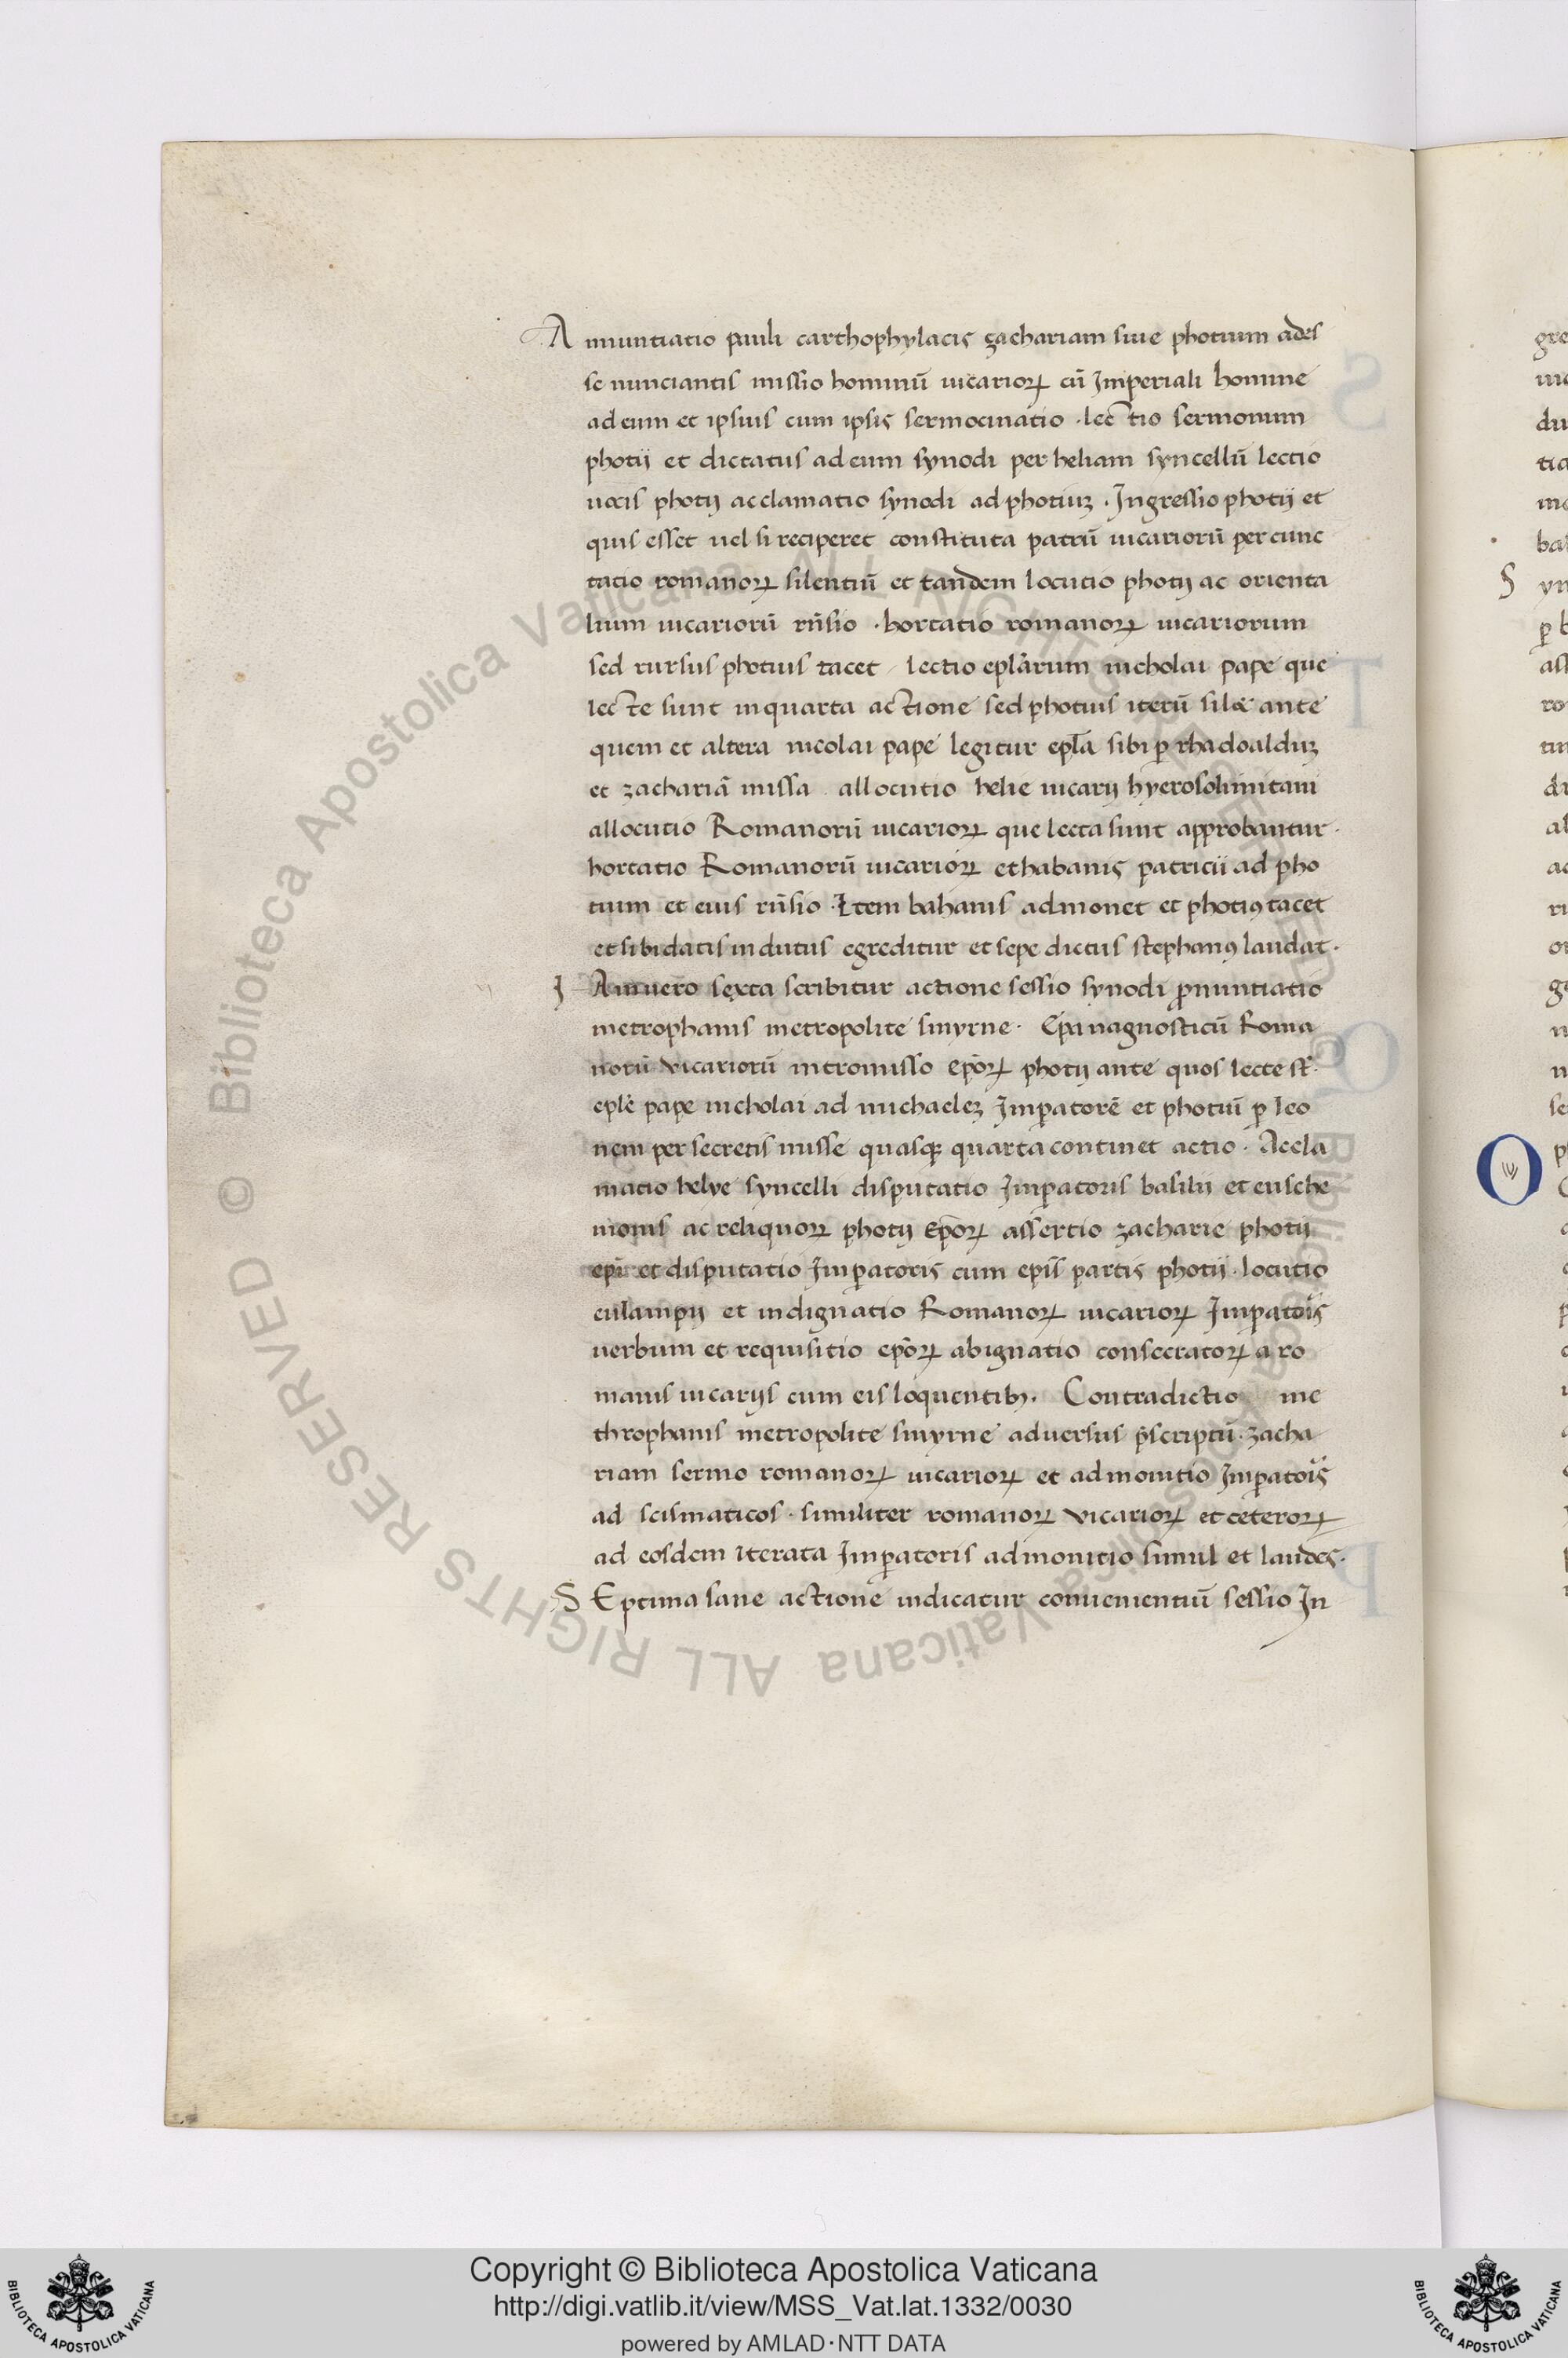 A nnuntiatio pauli carthophylacis zachariam siue photium ades
se nunciantis missio hominū uicarioꝝ cū Imperiali homine
ad eum et ipsius cum ipsis sermocinatio · lectio sermonum
photij et dictatus ad eum synodi per heliam syncellū lectio
uocis photij acclamatio synodi ad photiuꝫ · Ingressio photij et
quis esset uel si reciperet constituta patrū uicariorū percunc
tatio romanoꝝ silentiū et tandem locutio photij ac orienta
lium uicariorū rn̄sio · hortatio romanoꝝ uicariorum
sed rursus photius tacet lectio epl̄arum nicholai pape que
lecte sunt in quarta actione sed photius iterū silet ante
quem et altera nicolai pape legitur epl̄a sibi ꝑ rhadoalduꝫ
et zachariā missa allocutio helie uicarij hyerosolimitani
allocutio Romanorū uicarioꝝ que lecta sunt approbantur·
hortatio Romanorū uicarioꝝ et habanis patricii ad pho
tium et eius rn̄sio · Item bahanis admonet et photiꝰ tacet
et sibi datis indutiis egreditur et sepe dictus stephanꝰ laudat·
I Amuero sexta scribitur actione sessio synodi pronuntiatio
metrophanis metropolite smyrne · Epanagnosticū Roma
norū vicariorū intromissio ep̄oꝝ photij ante quos lecte st̄·
epl̄e pape nicholai ad michaeleꝫ Imꝑatorē et photiū ꝑ leo
nem per secretis misse quasqꝫ quarta continet actio · Accla
matio helye syncelli disputatio Imꝑatoris basilii et eusche
monis ac reliquoꝝ photij Ep̄oꝝ assertio zacharie photij
ep̄i et disputatio Imꝑatoris cum ep̄is partis photij · locutio
eulampij et indignatio Romanoꝝ uicarioꝝ Imꝑatoīs
uerbum et requisitio ep̄oꝝ abignatio consecratoꝝ a ro
manis uicarijs cum eis loquentibꝫ · Contradictio me
throphanis metropolite smyrne aduersus p̄scriptū · zacha
riam sermo romanoꝝ uicarioꝝ et admonitio Imꝑatoīs
ad scismaticos · similiter romanoꝝ vicarioꝝ et ceteroꝝ
ad eosdem iterata Imꝑatoris admonitio simul et laudes·
S Eptima sane actione indicatur conuenientiū sessio In
S
O
© Biblioteca Apostolica Vaticana ALL RIGHTS RESERVED © Biblioteca Apostolica Vaticana ALL RIGHTS RESERVED
Copyright © Biblioteca Apostolica Vaticana
http://digi.vatlib.it/view/MSS_Vat.lat.1332/0030
powered by AMLAD·NTT DATA
BIBLIOTECA APOSTOLICA VATICANA
BIBLIOTECA APOSTOLICA VATICANA